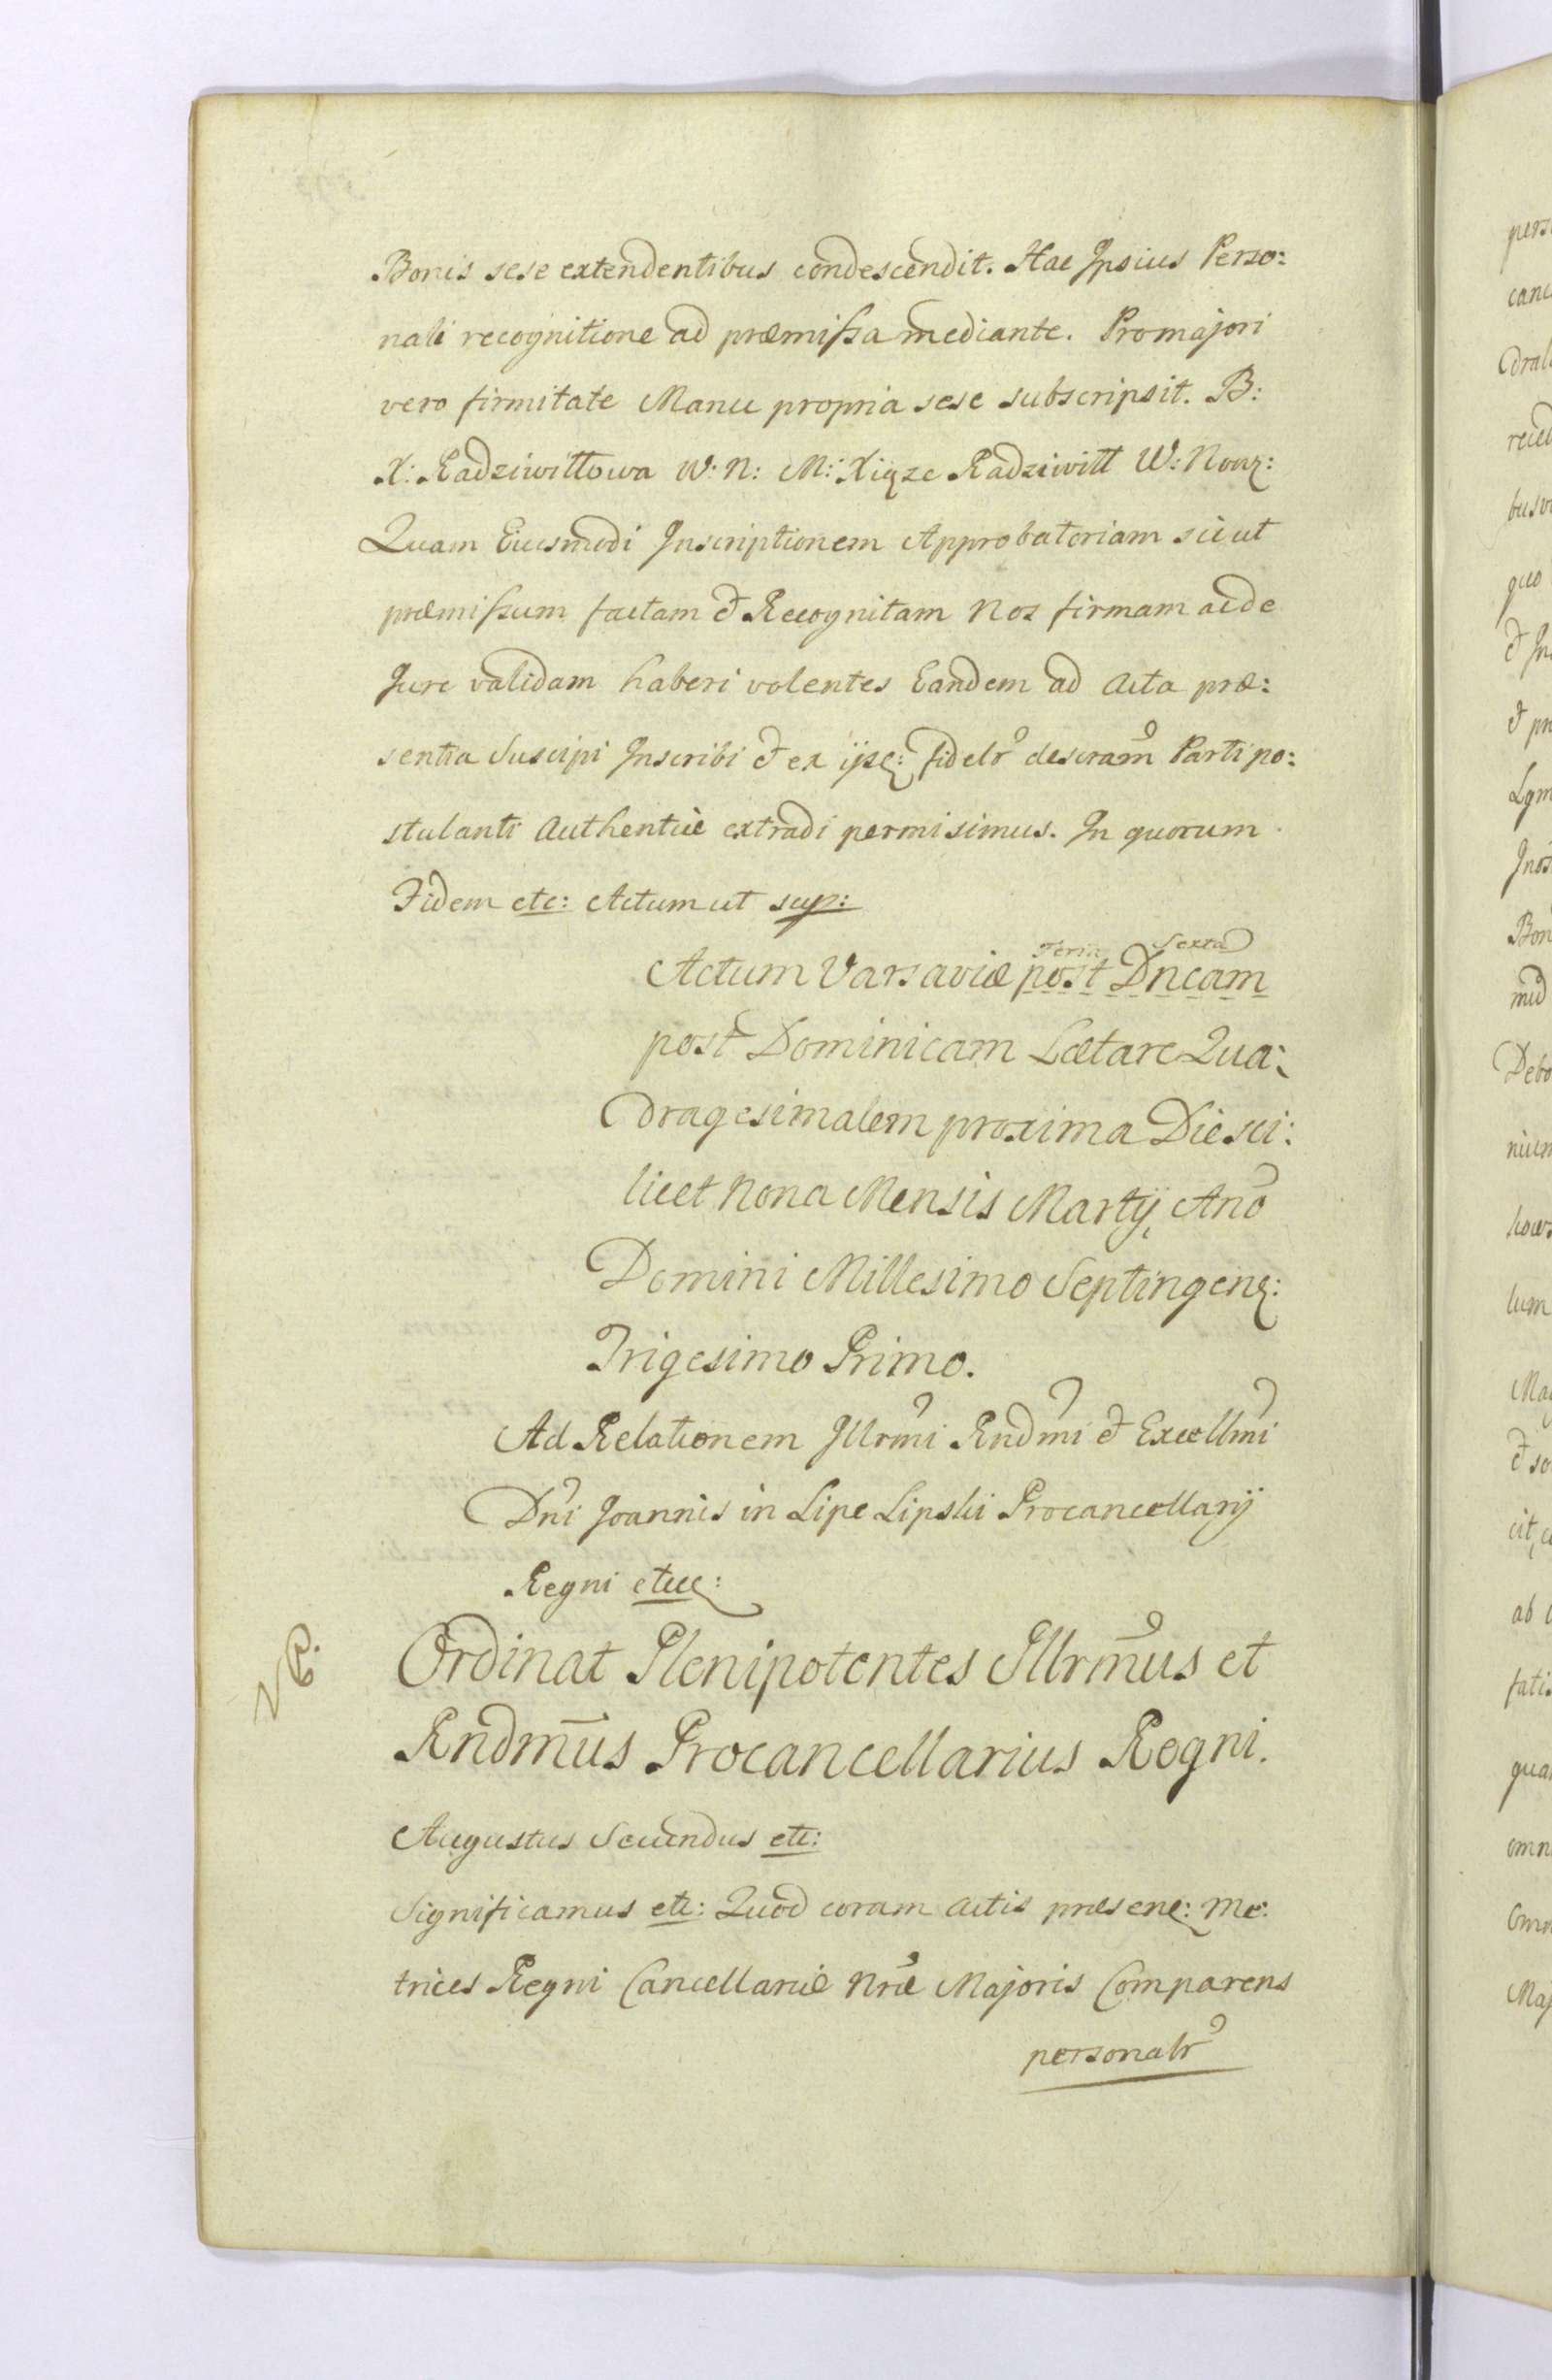 Bonis sese extendentibus condescendit. Hac Ipsius Perso:
nali recognitione ad præmissa mediante. Pro majori
vero firmitate Manu propria sese subscripsit. B:
X: Radziwiłłowa W: N: M: Xiąze Radziwiłł W: Nowꝫ:
Quam Eiusmodi Inscriptionem Approbatoriam sicut
præmissum factam & Recognitam Nos firmam ac de
Jure validam haberi volentes Eandem ad Acta præ:
sentia Suscipi Inscribi & ex ijsꝫ: fidelr descram Parti po:
stulanti Authenticè extradi permisimus. In quorum
Fidem etc: Actum ut sup:
Feria Sexta
Actum Varsaviæ post Dncam
post Dominicam Lætare Qua:
dragesimalem proxima Die sci:
licet Nona Mensis Martij, Ano
Domini Millesimo Septingenꝫ:
Trigesimo Primo.
Ad Relationem Illrmi Rndmi & Excellmi
Dni Joannis in Lipe Lipski Procancellarij
Regni etcc:
VP.
Ordinat Plenipotentes Illrmus et
Rndmus Procancellarius Regni.
Augustus Secundus etc:
Significamus etc: Quod coram Actis præsenꝫ: Me:
trices Regni Cancellariæ Nræ Majoris Comparens
personalr